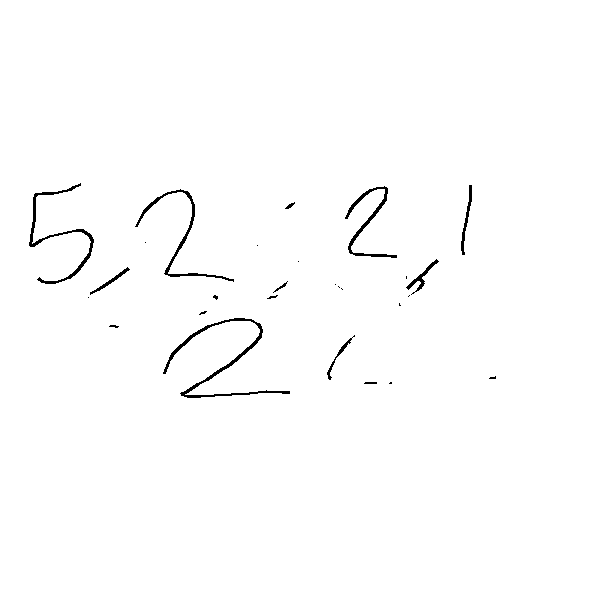 5,2 : 2,1
2